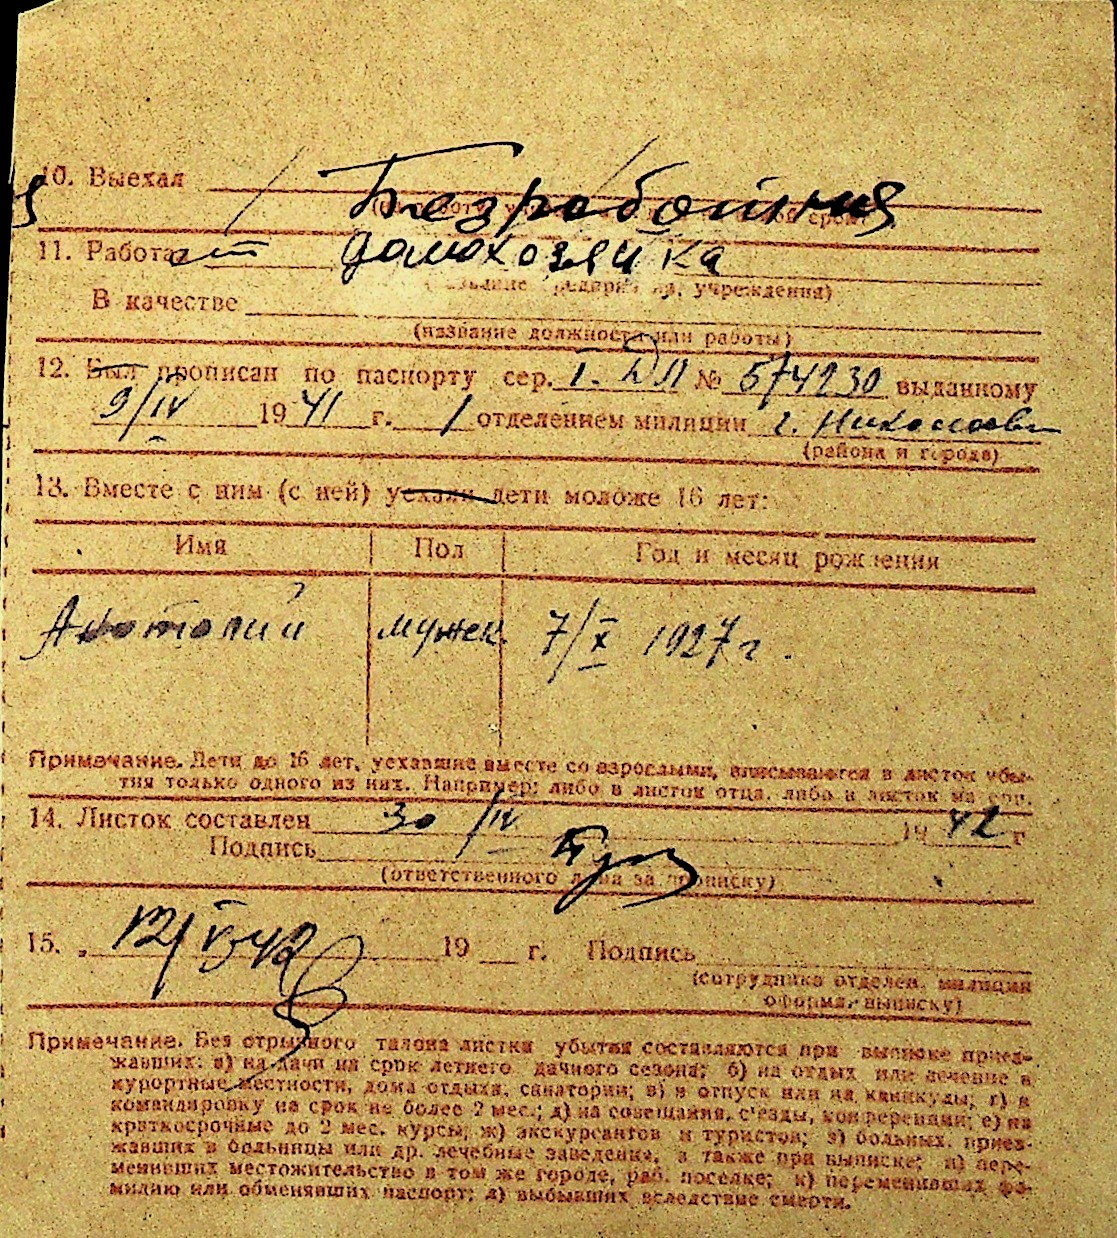 10. Выехал Безработная
11. Работает домохозяйка
(название предприятия, учреждения)
В качестве
(название должности или работы)
12. Был прописан по паспорту сер. № 574230 выданному
9/IV 1941 г. 1 отделением милиции г. Николаев
(района и города)
13. Вместе с ним (с ней) уехали дети моложе 16 лет:
Имя Пол Год и месяц рождения
Анатолий мужск. 7/X 1927 г.
Примечание. Дети до 16 лет, уехавшие вместе со взрослыми, вписываются в листок убы-
тия только одного из них. Например: либо в листок отца, либо в листок матери.
14. Листок составлен 30/IV 1942 г
Подпись
(ответственного лица за прописку)
15. „ 12/V 42 19 г. Подпись
(сотрудника отделен. милиции
оформл. выписку)
Примечание. Без отрывного талона листки убытия составляются при выписке приез-
жавших: а) на дачи на срок летнего дачного сезона; б) на отдых или лечение в
курортные местности, дома отдыха, санатории; в) в отпуск или на каникулы; г) в
командировку на срок не более 2 мес.; д) на совещания, с'езды, конференции; е) на
краткосрочные до 2 мес. курсы; ж) экскурсантов и туристов; з) больных, приез-
жавших в больницы или др. лечебные заведения, а также при выписке; и) пере-
менивших местожительство в том же городе, раб. поселке; к) переменивших фа-
милию или обменявших паспорт; л) выбывших вследствие смерти.